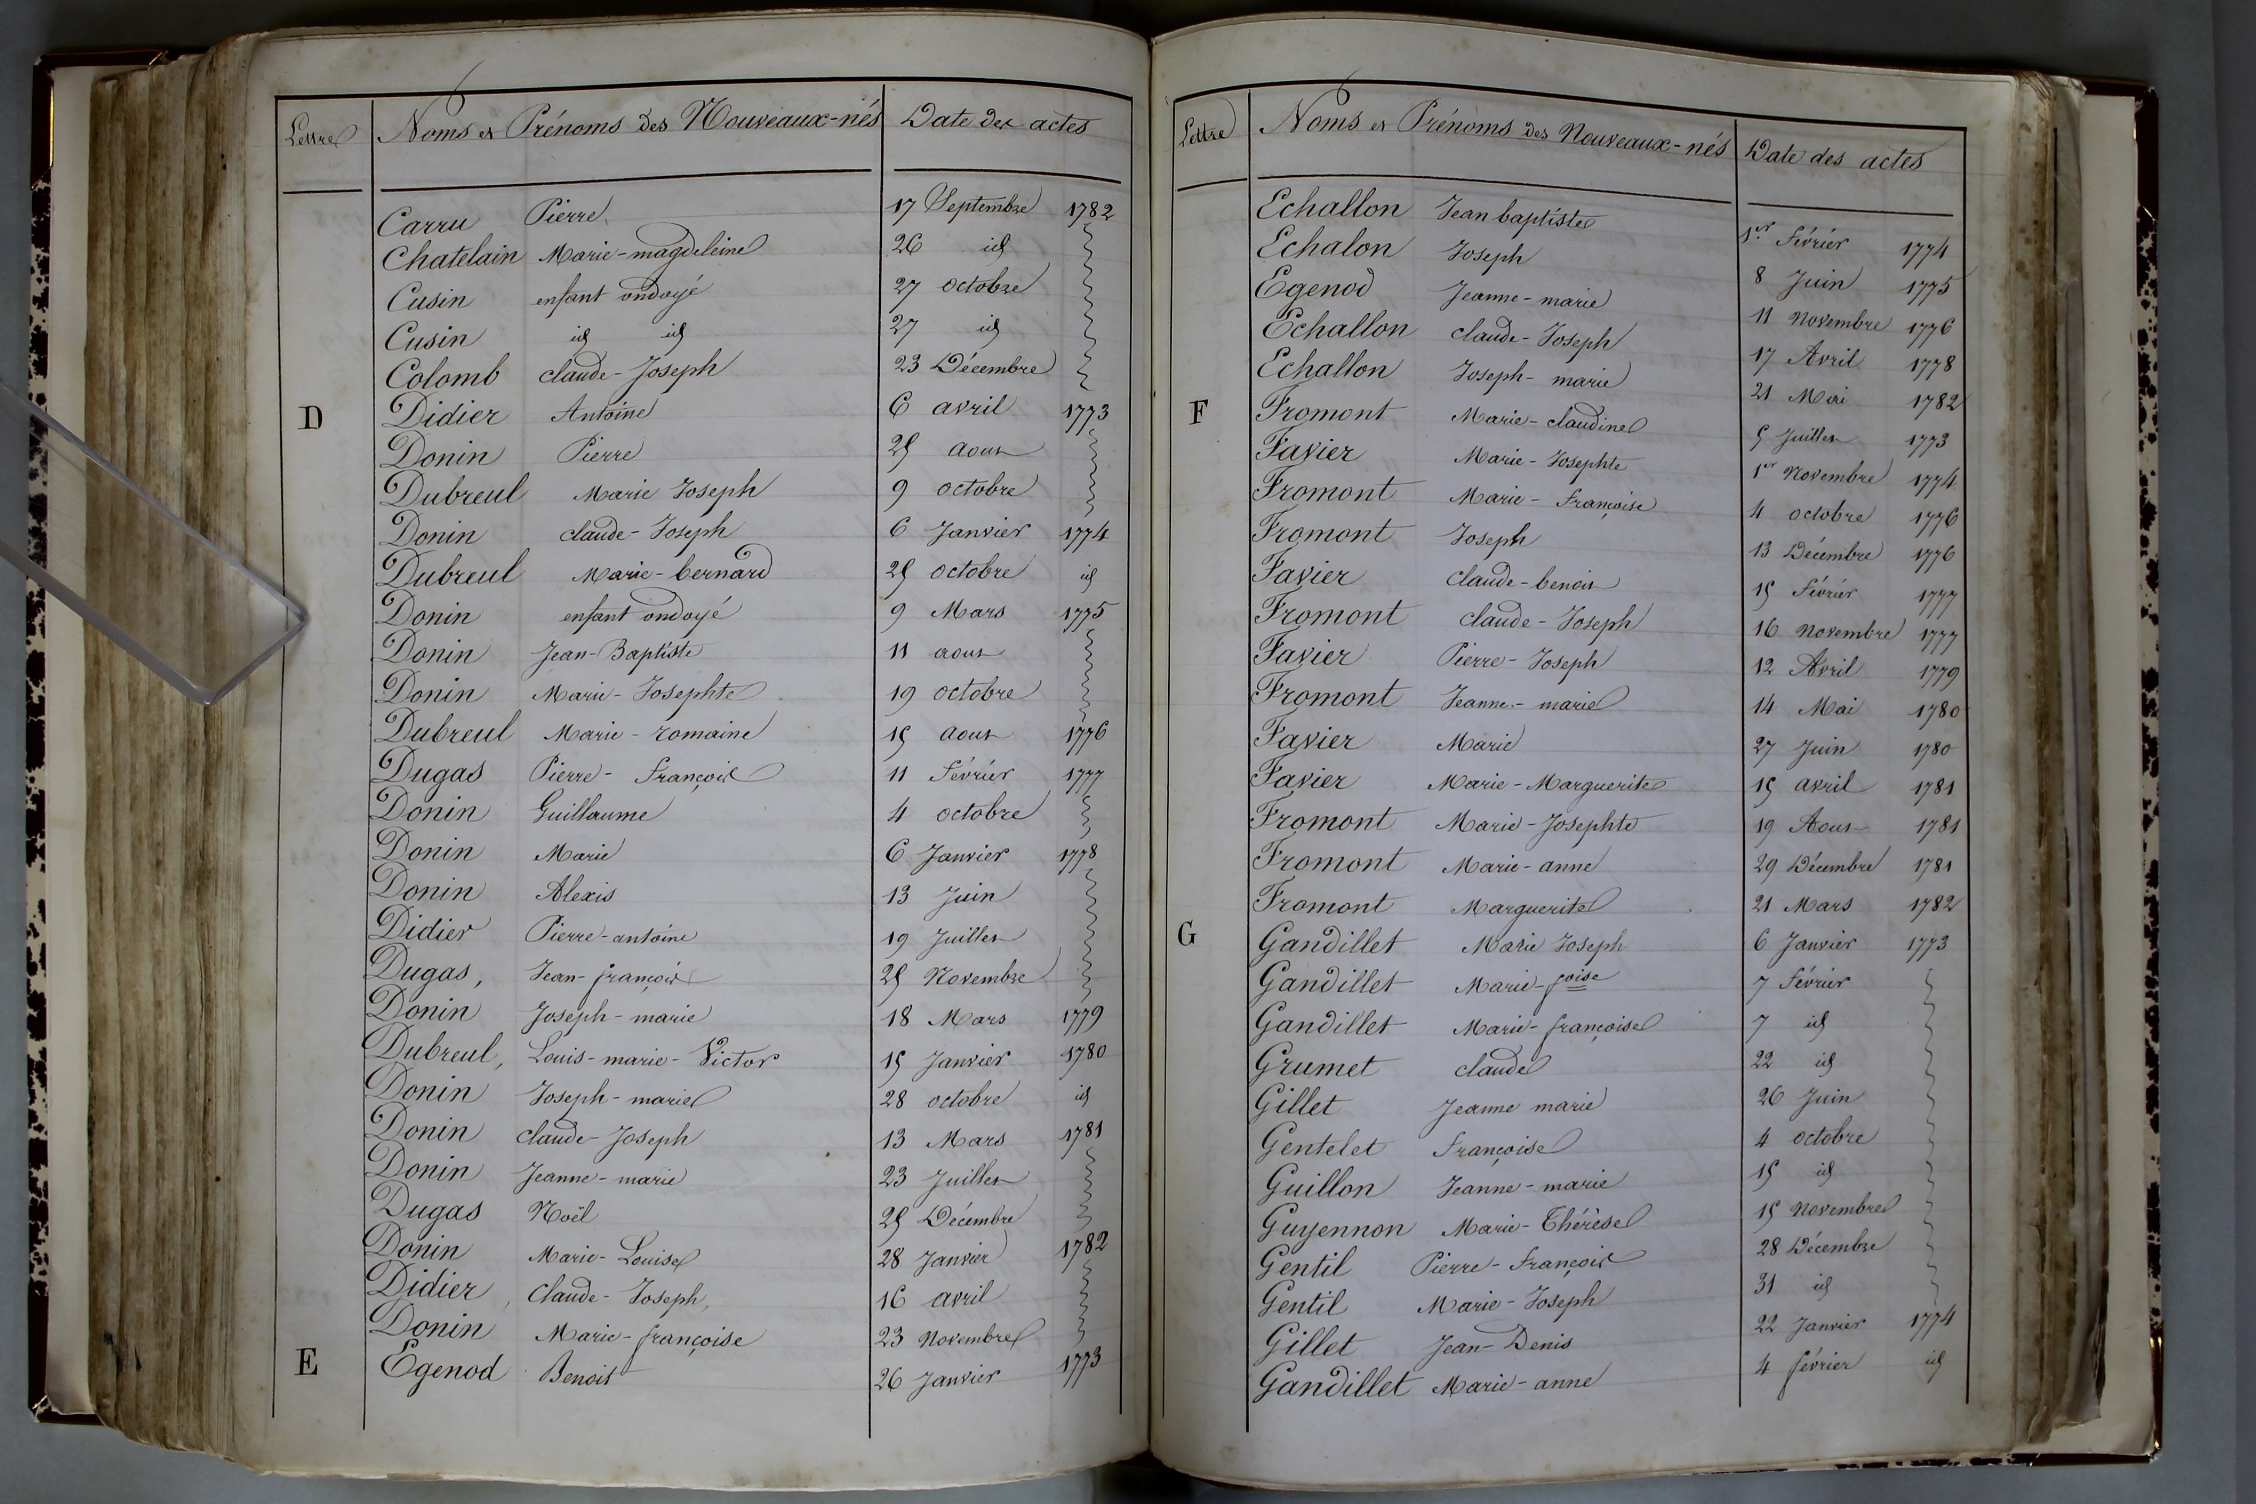 Lettre Noms et Prénoms des Nouveaux-nés Date des actes
Carru Pierre 17 Septembre 1782
Chatelain Marie-magdeleine 26 id
Cusin enfant ondoyé 27 octobre
Cusin id id 27 id
Colomb claude-Joseph 23 Décembre
D Didier Antoine 6 avril 1773
Donin Pierre 25 aout
Dubreul Marie Joseph 9 octobre
Donin claude-Joseph 6 Janvier 1774
Dubreul Marie-bernard 25 octobre id
Donin enfant ondoyé 9 Mars 1775
Donin Jean-Baptiste 11 aout
Donin Marie-Josephte 19 octobre
Dubreul Marie-romaine 15 aout 1776
Dugas Pierre-François 11 Février 1777
Donin Guillaume 4 octobre
Donin Marie 6 Janvier 1778
Donin Alexis 13 Juin
Didier Pierre-antoine 19 Juillet
Dugas, Jean-françois 25 Novembre
Donin Joseph-marie 18 Mars 1779
Dubreul, Louis-marie-Victor 15 Janvier 1780
Donin Joseph-marie 28 octobre id
Donin claude-Joseph 13 Mars 1781
Donin Jeanne-marie 23 Juillet
Dugas Noël 25 Décembre
Donin Marie-Louise 28 Janvier 1782
Didier, Claude-Joseph, 16 avril
Donin Marie-françoise 23 Novembre
E Egenod Benoit 26 Janvier 1773
Lettre Noms et Prénoms des Nouveaux-nés Date des actes
Echallon Jean baptiste 1er Février 1774
Echalon Joseph 8 Juin 1775
Egenod Jeanne-marie 11 Novembre 1776
Echallon claude-Joseph 17 Avril 1778
Echallon Joseph-marie 21 Mai 1782
F Fromont Marie-claudine 5 Juillet 1773
Favier Marie-Josephte 1er Novembre 1774
Fromont Marie-Françoise 4 octobre 1776
Fromont Joseph 13 Décembre 1776
Favier claude-benoit 15 Février 1777
Fromont claude-Joseph 16 Novembre 1777
Favier Pierre-Joseph 12 Avril 1779
Fromont Jeanne-marie 14 Mai 1780
Favier Marie 27 Juin 1780
Favier Marie-Marguerite 15 avril 1781
Fromont Marie-Josephte 19 Aout 1781
Fromont Marie-anne 29 Décembre 1781
Fromont Marguerite 21 Mars 1782
G Gandillet Marie Joseph 6 Janvier 1773
Gandillet Marie-foise 7 Février
Gandillet Marie-françoise 7 id
Grumet claude 22 id
Gillet Jeanne marie 26 Juin
Gentelet Françoise 4 octobre
Guillon Jeanne-marie 15 id
Guyennon Marie-Thérèse 15 Novembre
Gentil Pierre-François 28 Décembre
Gentil Marie-Joseph 31 id
Gillet Jean-Denis 22 Janvier 1774
Gandillet Marie-anne 4 février id